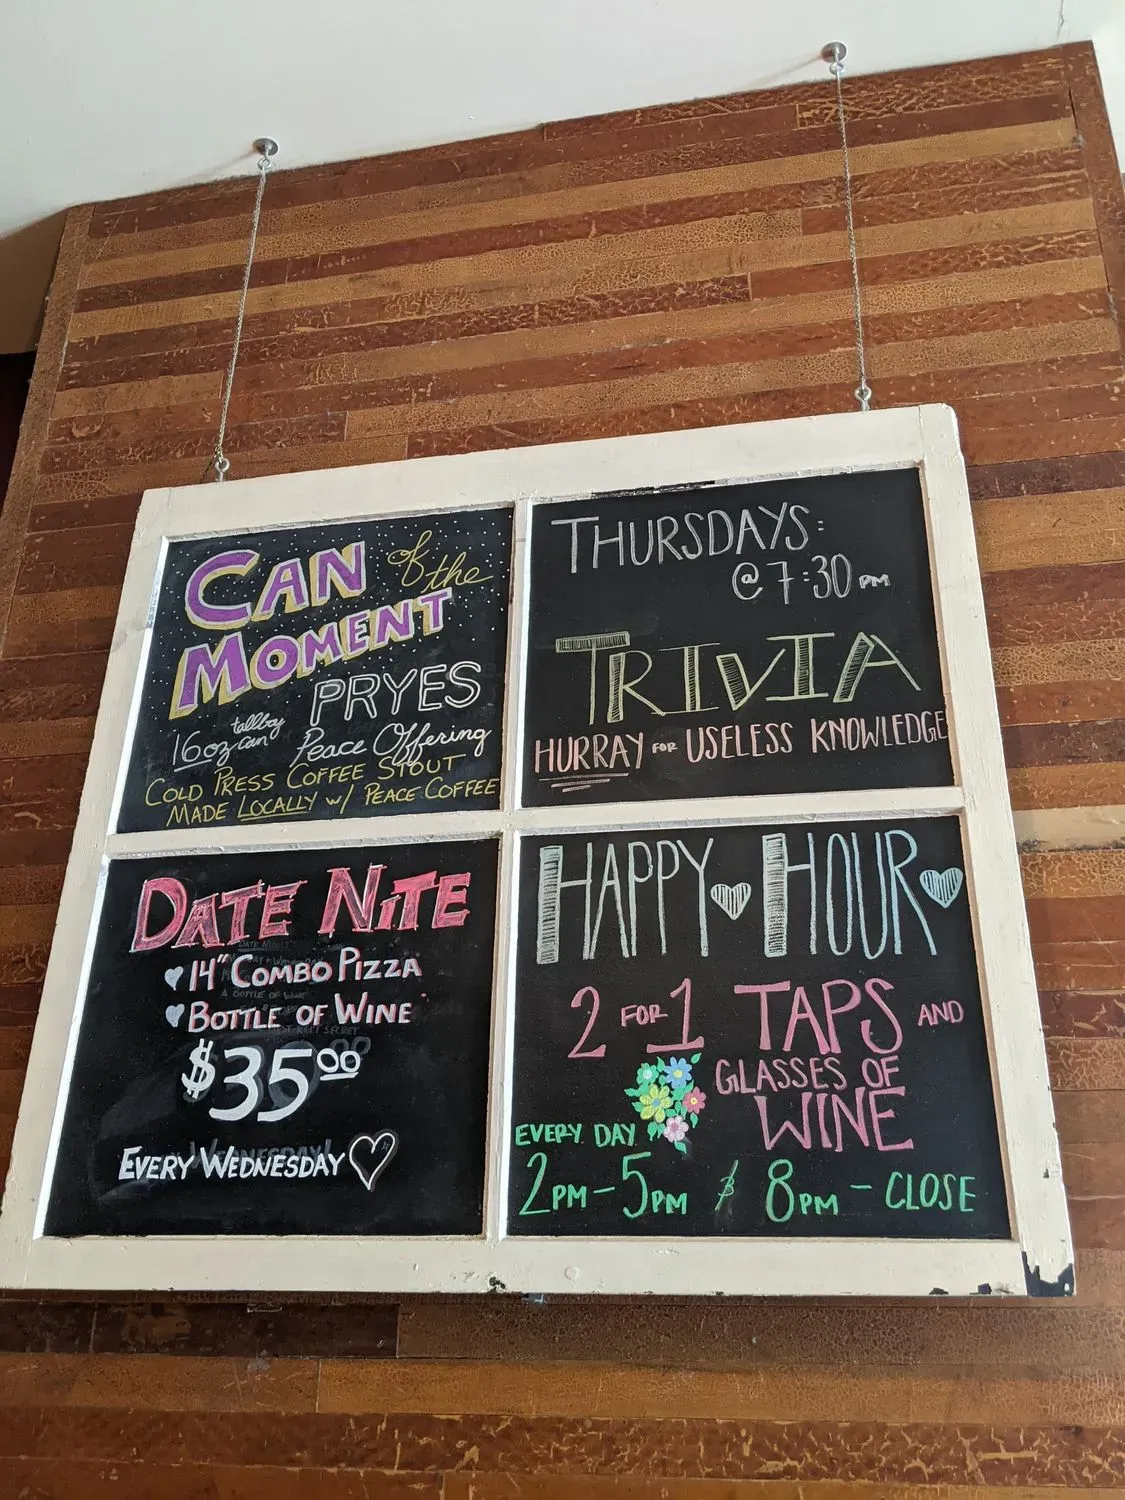 CAN of the
MOMENT
PRYES
16oz tallboy can Peace Offering
COLD PRESS COFFEE STOUT
MADE LOCALLY w/ PEACE COFFEE
THURSDAYS:
@ 7:30 PM
TRIVIA
HURRAY FOR USELESS KNOWLEDGE
DATE NITE
14" COMBO PIZZA
BOTTLE OF WINE
$35⁰⁰
EVERY WEDNESDAY
HAPPY HOUR
2 FOR 1 TAPS AND
GLASSES OF
WINE
EVERY DAY
2PM - 5PM & 8PM - CLOSE